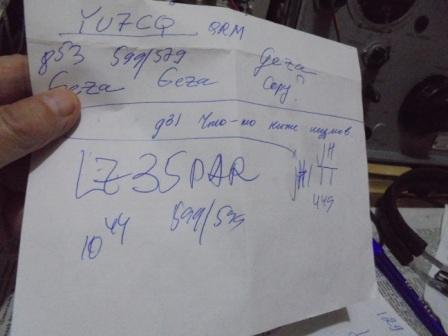 YU7CQ QRM
8⁵³ 599/579 Geza
Geza Geza Copy?
9³¹ Что-то ниже шумов
LZ35PAR UA
TT
10⁴⁴ 599/599 449